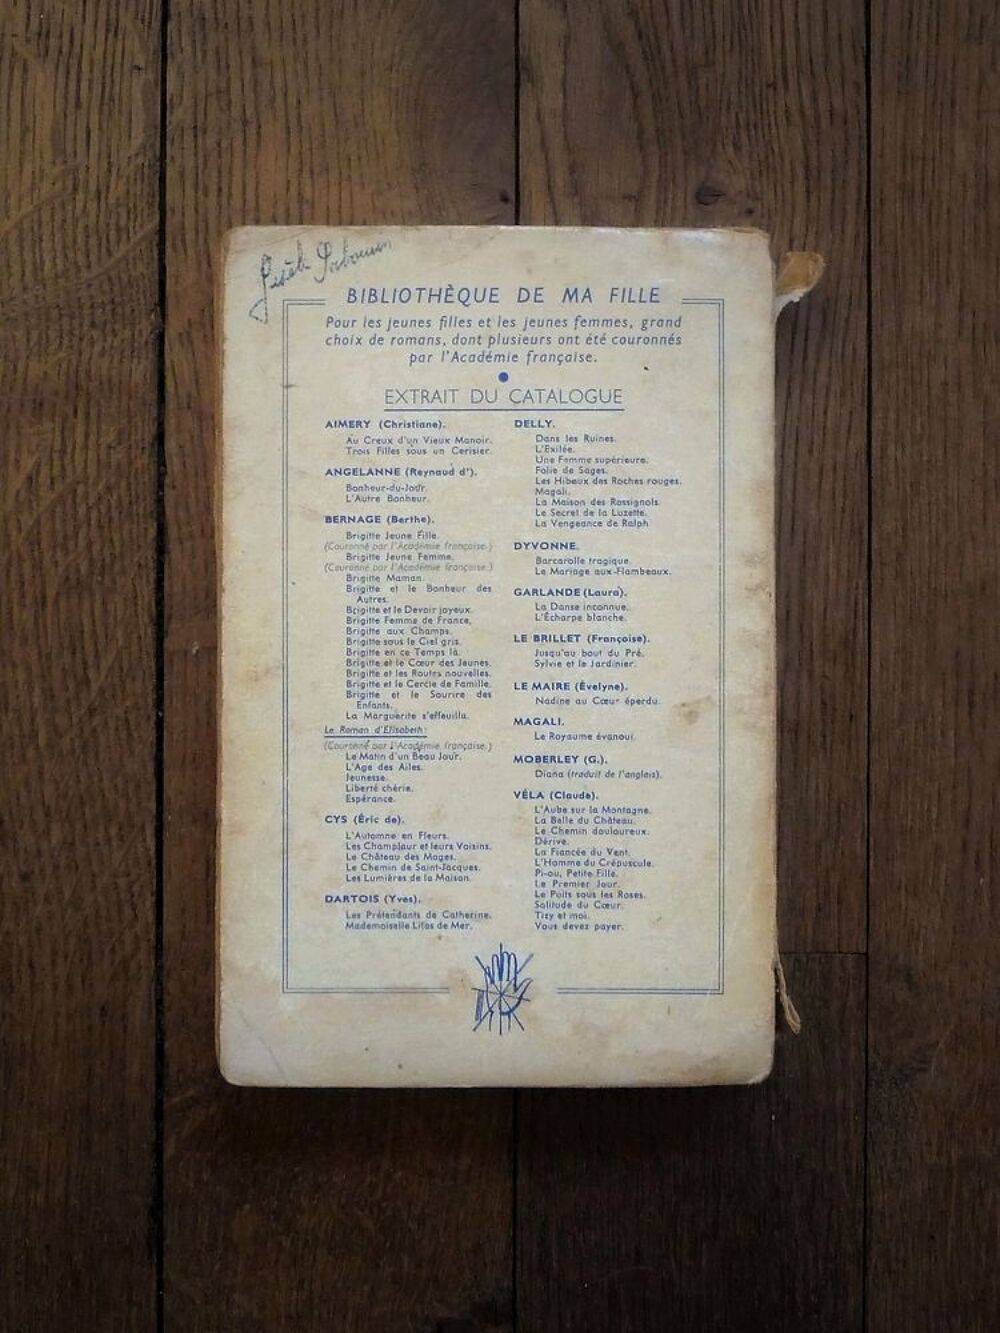 BIBLIOTHÈQUE DE MA FILLE
Pour les jeunes filles et les jeunes femmes, grand
choix de romans, dont plusieurs ont été couronnés
par l'Académie française.
EXTRAIT DU CATALOGUE
AIMERY (Christiane).
Au Creux d'un Vieux Manoir.
Trois Filles sous un Cerisier.
ANGELANNE (Reynaud d').
Bonheur-du-Jour.
L'Autre Bonheur.
BERNAGE (Berthe).
Brigitte Jeune Fille.
(Couronné par l'Académie française.)
Brigitte Jeune Femme.
(Couronné par l'Académie française.)
Brigitte Maman.
Brigitte et le Bonheur des
Autres.
Brigitte et le Devoir joyeux.
Brigitte Femme de France.
Brigitte aux Champs.
Brigitte sous le Ciel gris.
Brigitte en ce Temps là.
Brigitte et le Cœur des Jeunes.
Brigitte et les Routes nouvelles.
Brigitte et le Cercle de Famille.
Brigitte et le Sourire des
Enfants.
La Marguerite s'effeuilla.
Le Roman d'Elisabeth:
(Couronné par l'Académie française.)
Le Matin d'un Beau Jour.
L'Age des Ailes.
Jeunesse.
Liberté chérie.
Espérance.
CYS (Éric de).
L'Automne en Fleurs.
Les Champlaur et leurs Voisins.
Le Château des Mages.
Le Chemin de Saint-Jacques.
Les Lumières de la Maison.
DARTOIS (Yves).
Les Prétendants de Catherine.
Mademoiselle Litas de Mer.
DELLY.
Dans les Ruines.
L'Exilée.
Une Femme supérieure.
Folie de Sages.
Les Hiboux des Roches rouges.
Magali.
La Maison des Rossignols
Le Secret de la Luzette.
La Vengeance de Ralph
DYVONNE.
Barcarolle tragique.
Le Mariage aux-Flambeaux.
GARLANDE (Laura).
La Danse inconnue.
L'Écharpe blanche.
LE BRILLET (Françoise).
Jusqu'au bout du Pré.
Sylvie et le Jardinier.
LE MAIRE (Évelyne).
Nadine au Cœur éperdu.
MAGALI.
Le Royaume évanoui.
MOBERLEY (G.).
Diana (traduit de l'anglais).
VÉLA (Claude).
L'Aube sur la Montagne.
La Belle du Château.
Le Chemin douloureux.
Dérive.
La Fiancée du Vent.
L'Homme du Crépuscule.
Pi-ou, Petite Fille.
Le Premier Jour.
Le Puits sous les Roses.
Solitude du Cœur.
Tizy et moi.
Vous devez payer.